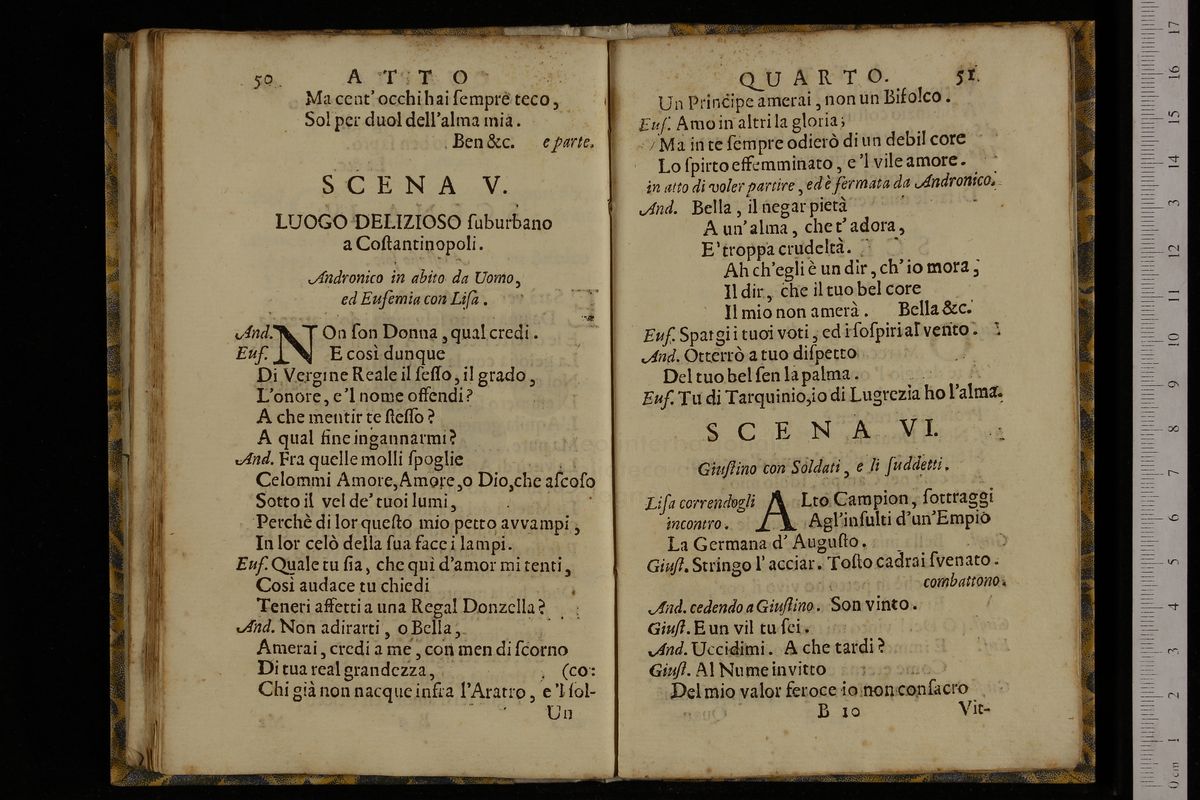 50 ATTO
Ma cent' occhi hai ſempre teco,
Sol per duol dell'alma mia.
Ben &c. e parte.
SCENA V.
LUOGO DELIZIOSO ſuburbano
a Coſtantinopoli.
Andronico in abito da Uomo,
ed Eufemia con Liſa.
And. NOn ſon Donna, qual credi.
Euf. E così dunque
Di Vergine Reale il ſeſſo, il grado,
L'onore, e 'l nome offendi?
A che mentir te ſteſſo?
A qual fine ingannarmi?
And. Fra quelle molli ſpoglie
Celommi Amore, Amore, o Dio, che aſcoſo
Sotto il vel de' tuoi lumi,
Perchè di lor queſto mio petto avvampi,
In lor celò della ſua face i lampi.
Euf. Quale tu ſia, che qui d'amor mi tenti,
Così audace tu chiedi
Teneri affetti a una Regal Donzella?
And. Non adirarti, o Bella,
Amerai, credi a me, con men di ſcorno
Di tua real grandezza, (co:
Chi già non nacque infra l'Aratro, e 'l ſol-
Un
QUARTO. 51
Un Principe amerai, non un Bifolco.
Euf. Amo in altri la gloria;
Ma in te ſempre odierò di un debil core
Lo ſpirto effemminato, e 'l vile amore.
in atto di voler partire, ed è fermata da Andronico.
And. Bella, il negar pietà
A un' alma, che t' adora,
E' troppa crudeltà.
Ah ch'egli è un dir, ch' io mora;
Il dir, che il tuo bel core
Il mio non amerà. Bella &c.
Euf. Spargi i tuoi voti, ed i ſoſpiri al vento.
And. Otterrò a tuo diſpetto
Del tuo bel ſen la palma.
Euf. Tu di Tarquinio, io di Lugrezia ho l'alma.
SCENA VI.
Giuſtino con Soldati, e li ſuddetti.
Liſa correndogli ALto Campion, ſottraggi
incontro. Agl'inſulti d'un'Empio
La Germana d' Auguſto.
Giuſt. Stringo l' acciar. Toſto cadrai ſvenato.
combattono.
And. cedendo a Giuſtino. Son vinto.
Giuſt. E un vil tu ſei.
And. Uccidimi. A che tardi?
Giuſt. Al Nume invitto
Del mio valor feroce io non conſacro
B 10 Vit-